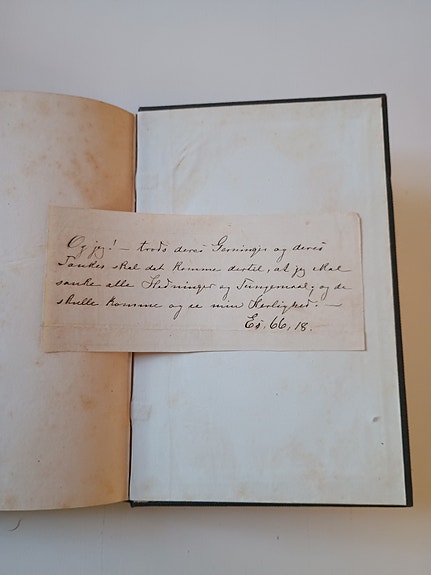 Og jeg! — trods deres Gerninger og deres
Tanker skal det komme dertil, at jeg skal
sanke alle Hedninger og Tungemaal; og de
skulle komme og se min Herlighed. —
Es. 66, 18.